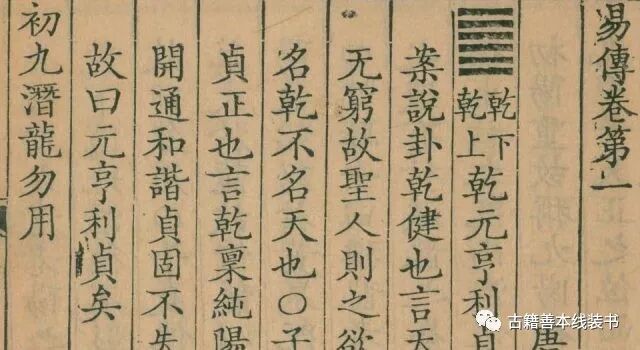 易傳卷第一
唐
䷀乾下乾上乾元亨利貞
案說卦乾健也言天
无窮故聖人則之欲
名乾不名天也○子
貞正也言乾稟純陽
開通和諧貞固不失
故曰元亨利貞矣
初九潛龍勿用
古籍善本线装书